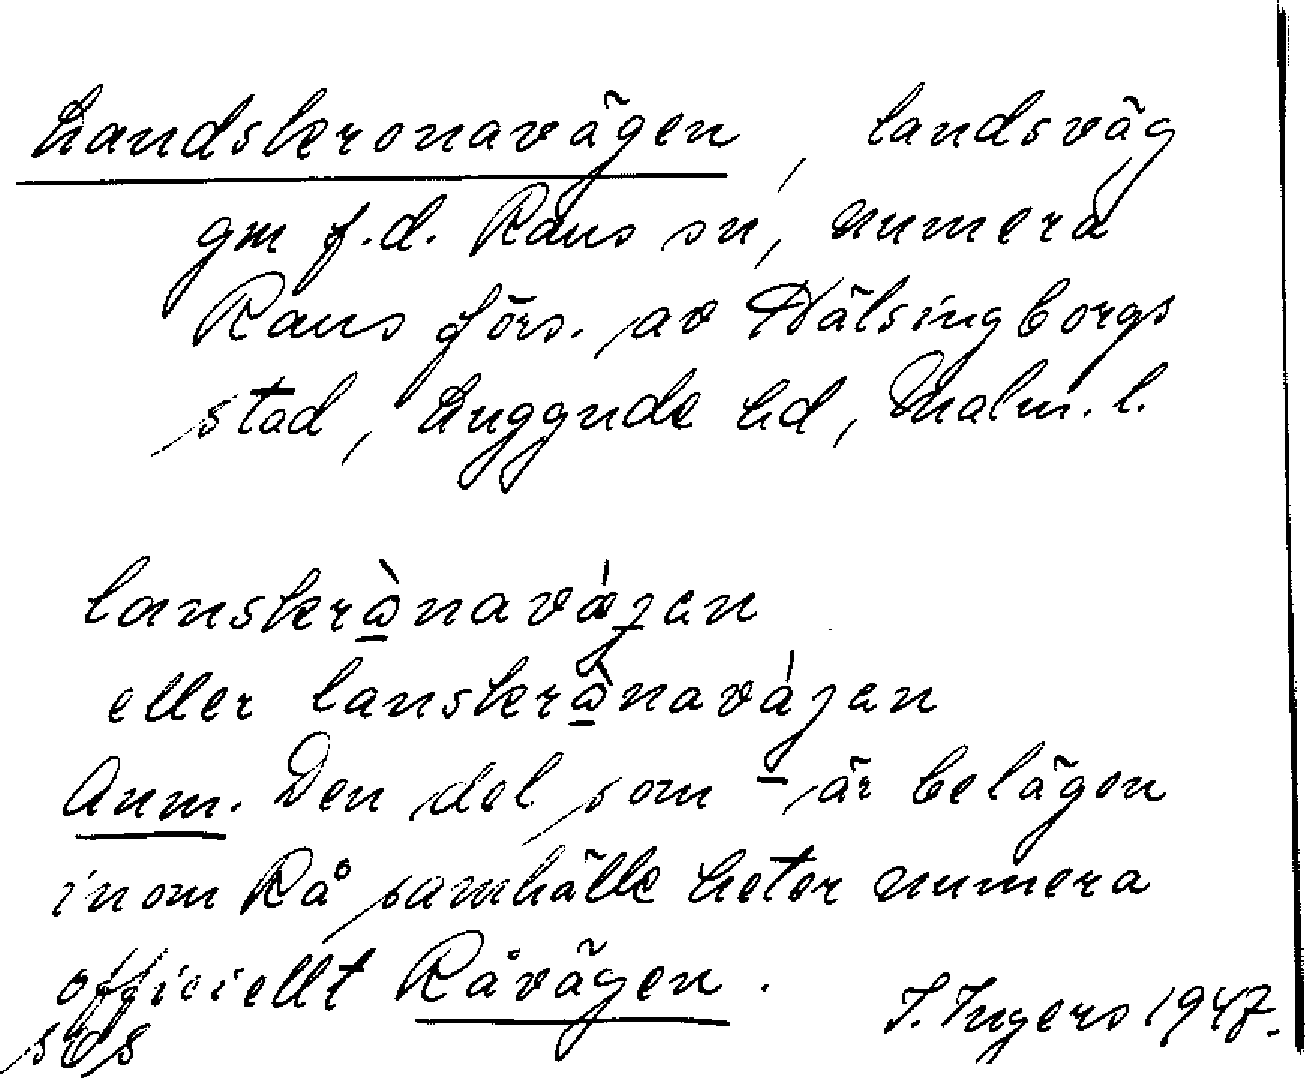 Landskronavägen, landsväg
gm f.d. Raus sn, numera
Raus förs. av Hälsingborgs
stad, Luggude hd, Malm. l.
lanskrònavǽjen
eller lanskrònavájen
Anm. Den del som är belägen
inom Rå samhälle heter numera
officiellt Råvägen.
I. Ingers 1947.